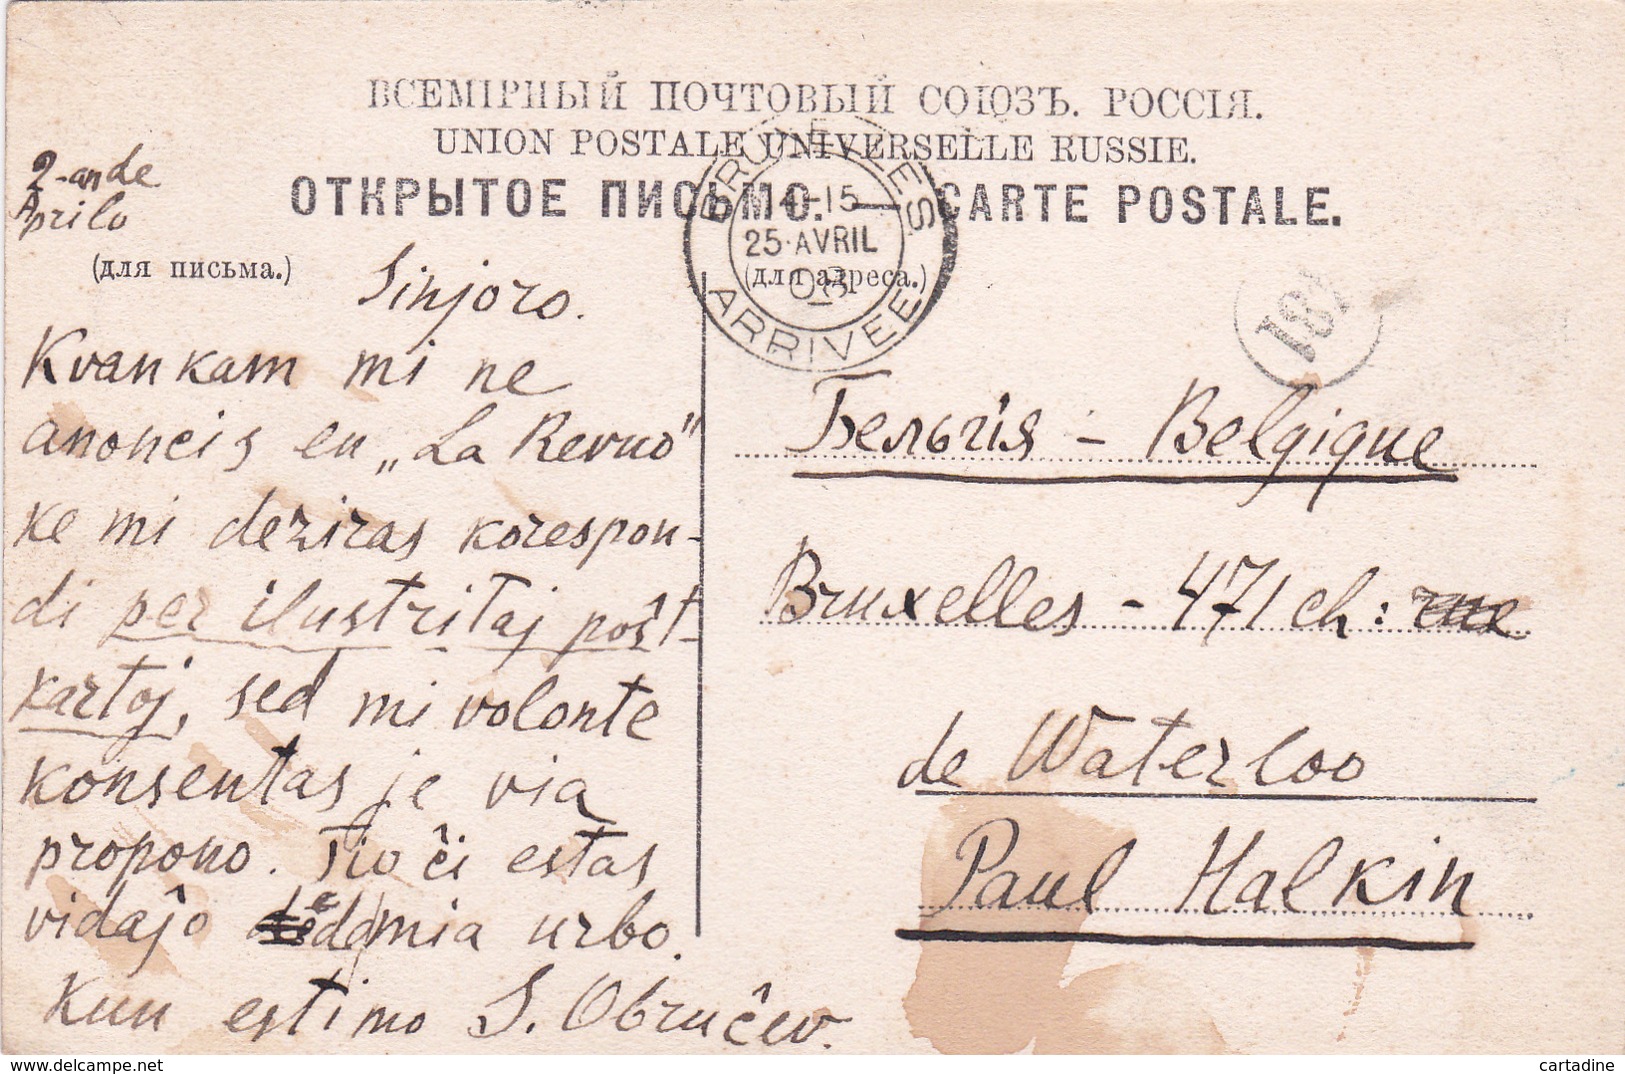 ВСЕМІРНЫЙ ПОЧТОВЫЙ СОЮЗЪ. РОССІЯ.
UNION POSTALE UNIVERSELLE RUSSIE.
ОТКРЫТОЕ ПИСЬМО. — CARTE POSTALE.
2-an de
Aprilo
(для письма.)
(для адреса.)
BRUXELLES
14-15
25·AVRIL
08
ARRIVEE
Sinjoro.
Kvankam mi ne
anoncis en „La Revuo"
ke mi deziras korespon-
di per ilustritaj poŝt-
kartoj, sed mi volonte
konsentas je via
propono. Tio ĉi estas
vidaĵo de mia urbo.
Kun estimo S. Obruĉev.
Бельгія - Belgique
Bruxelles - 471 ch: rue
de Waterloo
Paul Halkin
cartadine